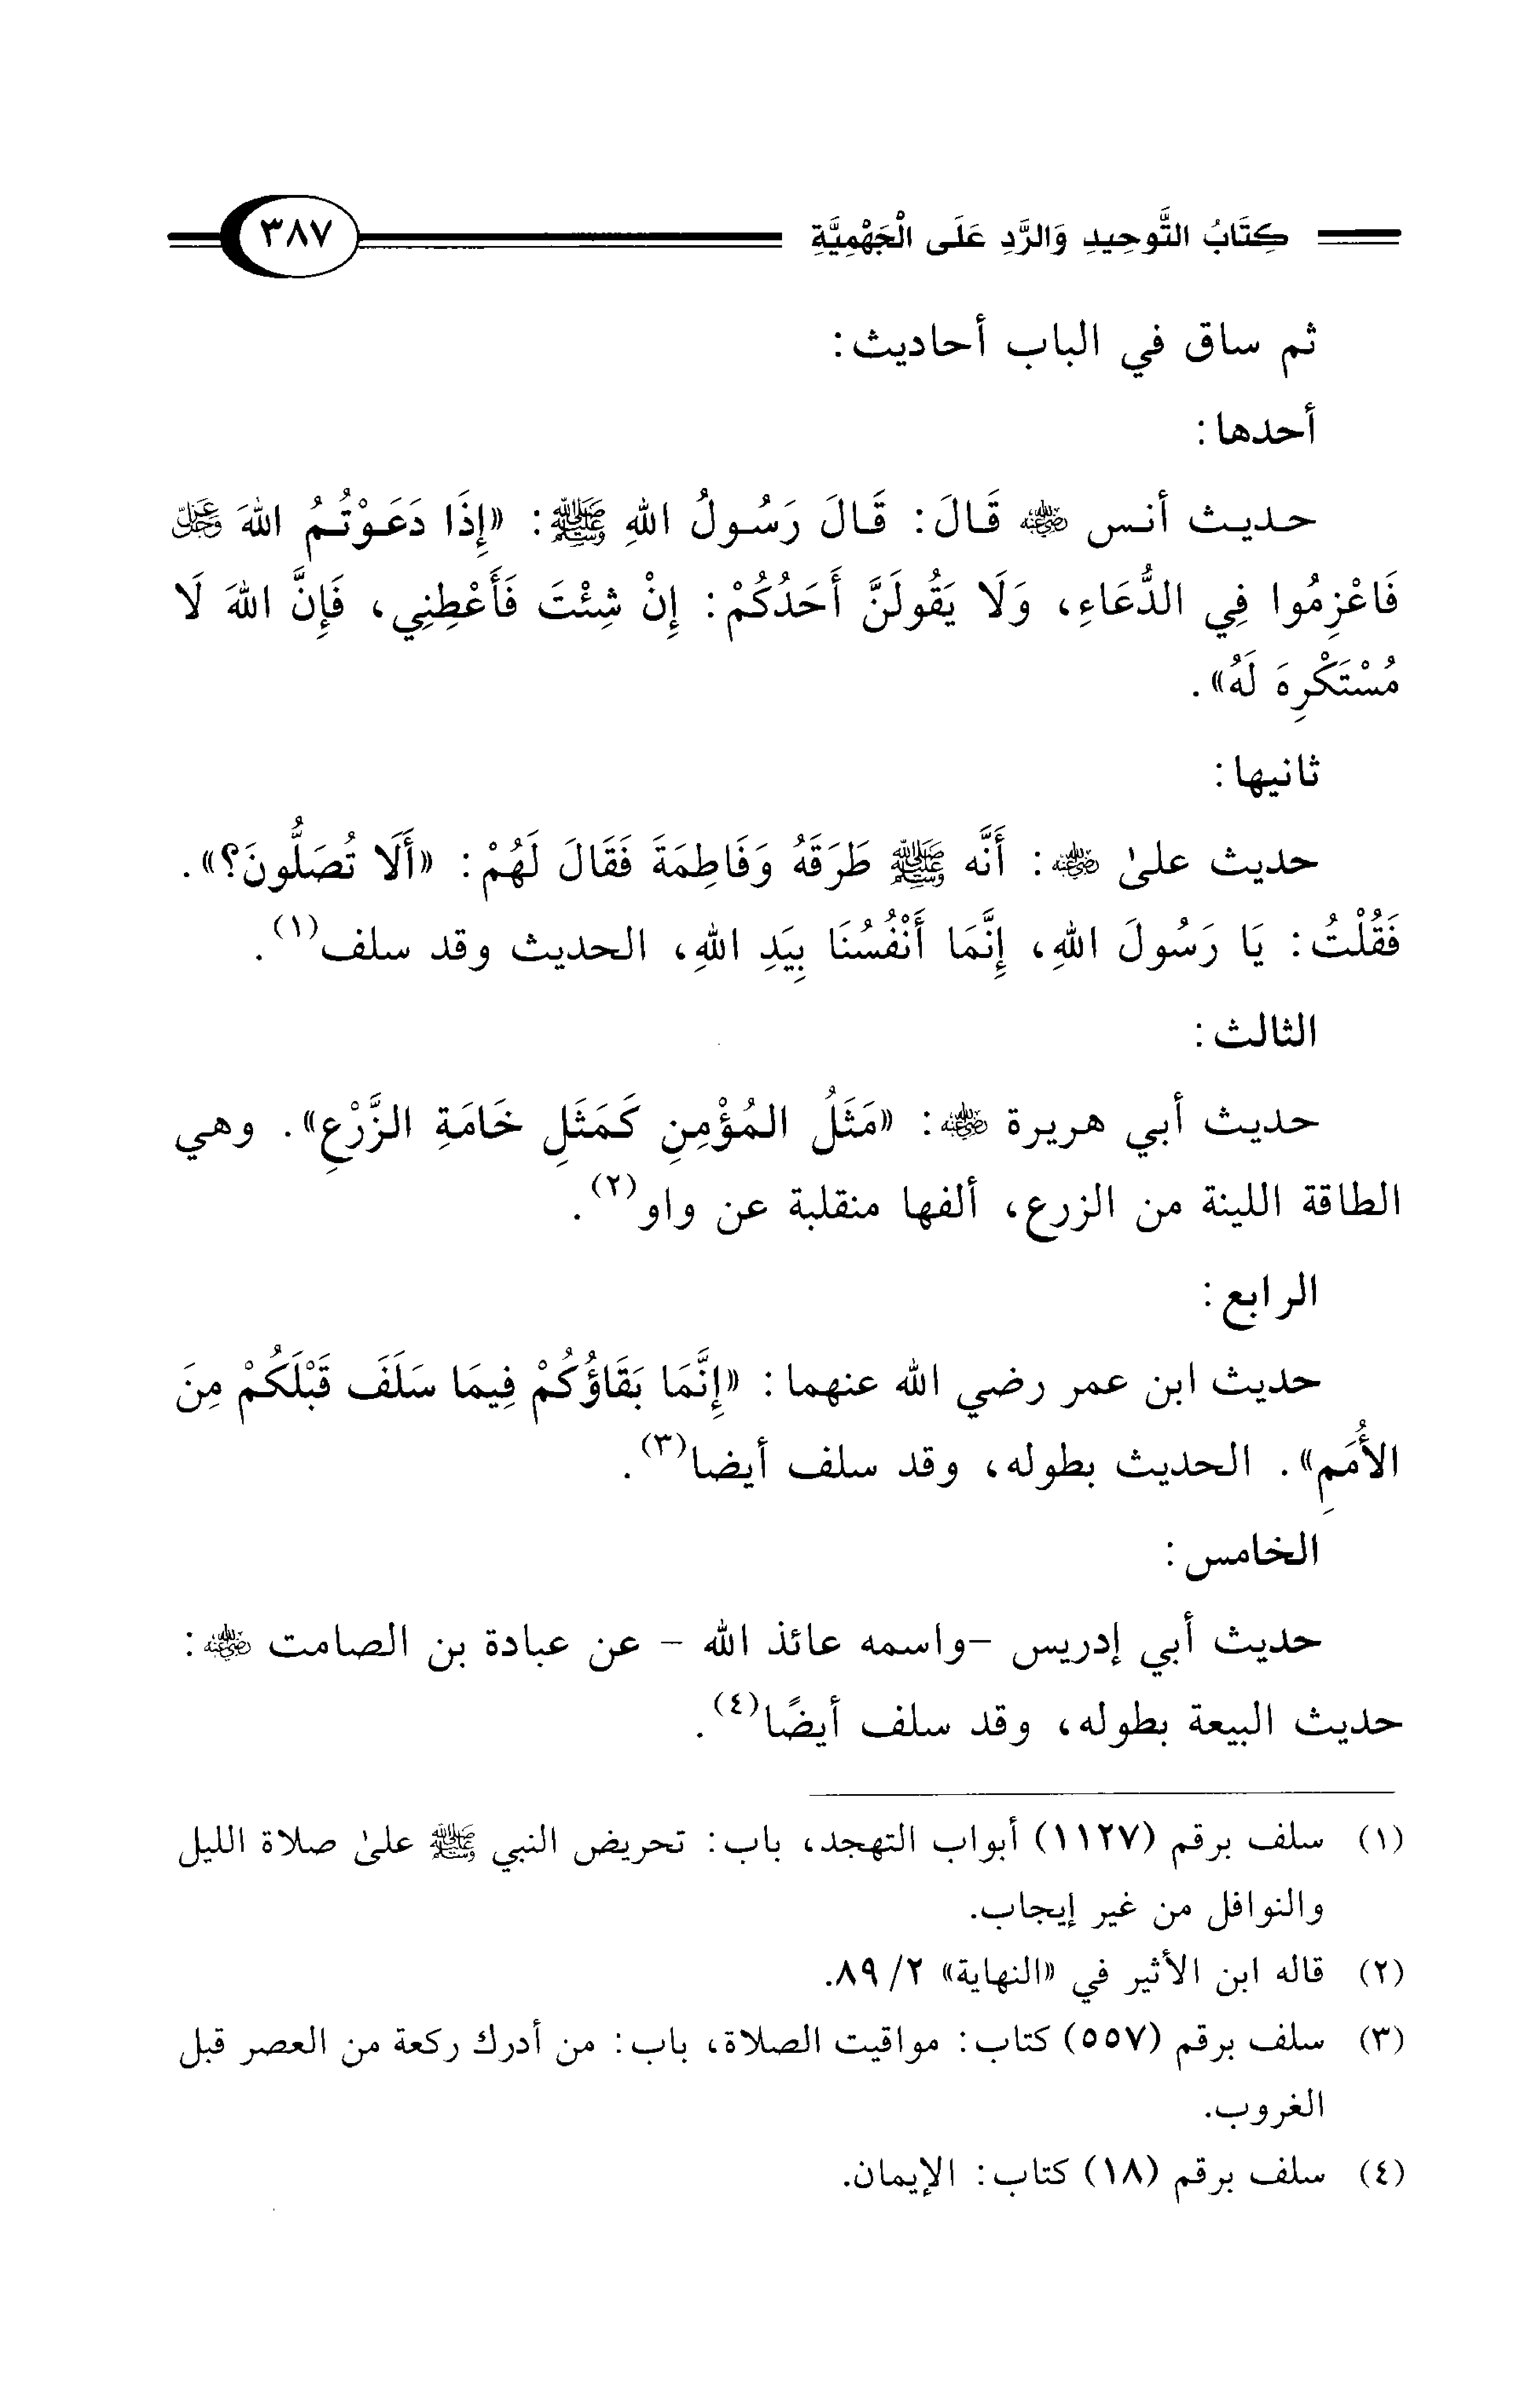 كِتَابُ التَّوحِيدِ وَالرَّدِ عَلَى الْجَهْمِيَّةِ ٣٨٧
ثم ساق في الباب أحاديث:
أحدها:
حديث أنس رضي الله عنه قَالَ: قَالَ رَسُولُ اللهِ ﷺ: «إِذَا دَعَوْتُمُ اللهَ عز وجل
فَاعْزِمُوا فِي الدُّعَاءِ، وَلَا يَقُولَنَّ أَحَدُكُمْ: إِنْ شِئْتَ فَأَعْطِنِي، فَإِنَّ اللهَ لَا
مُسْتَكْرِهَ لَهُ».
ثانيها:
حديث علىٰ رضي الله عنه: أَنَّه ﷺ طَرَقَهُ وَفَاطِمَةَ فَقَالَ لَهُمْ: «أَلَا تُصَلُّونَ؟».
فَقُلْتُ: يَا رَسُولَ اللهِ، إِنَّمَا أَنْفُسُنَا بِيَدِ اللهِ، الحديث وقد سلف(١).
الثالث:
حديث أبي هريرة رضي الله عنه: «مَثَلُ المُؤْمِنِ كَمَثَلِ خَامَةِ الزَّرْعِ». وهي
الطاقة اللينة من الزرع، ألفها منقلبة عن واو(٢).
الرابع:
حديث ابن عمر رضي الله عنهما: «إِنَّمَا بَقَاؤُكُمْ فِيمَا سَلَفَ قَبْلَكُمْ مِنَ
الأُمَمِ». الحديث بطوله، وقد سلف أيضا(٣).
الخامس:
حديث أبي إدريس -واسمه عائذ الله - عن عبادة بن الصامت رضي الله عنه:
حديث البيعة بطوله، وقد سلف أيضًا(٤).
(١) سلف برقم (١١٢٧) أبواب التهجد، باب: تحريض النبي ﷺ علىٰ صلاة الليل
والنوافل من غير إيجاب.
(٢) قاله ابن الأثير في «النهاية» ٢/ ٨٩.
(٣) سلف برقم (٥٥٧) كتاب: مواقيت الصلاة، باب: من أدرك ركعة من العصر قبل
الغروب.
(٤) سلف برقم (١٨) كتاب: الإيمان.